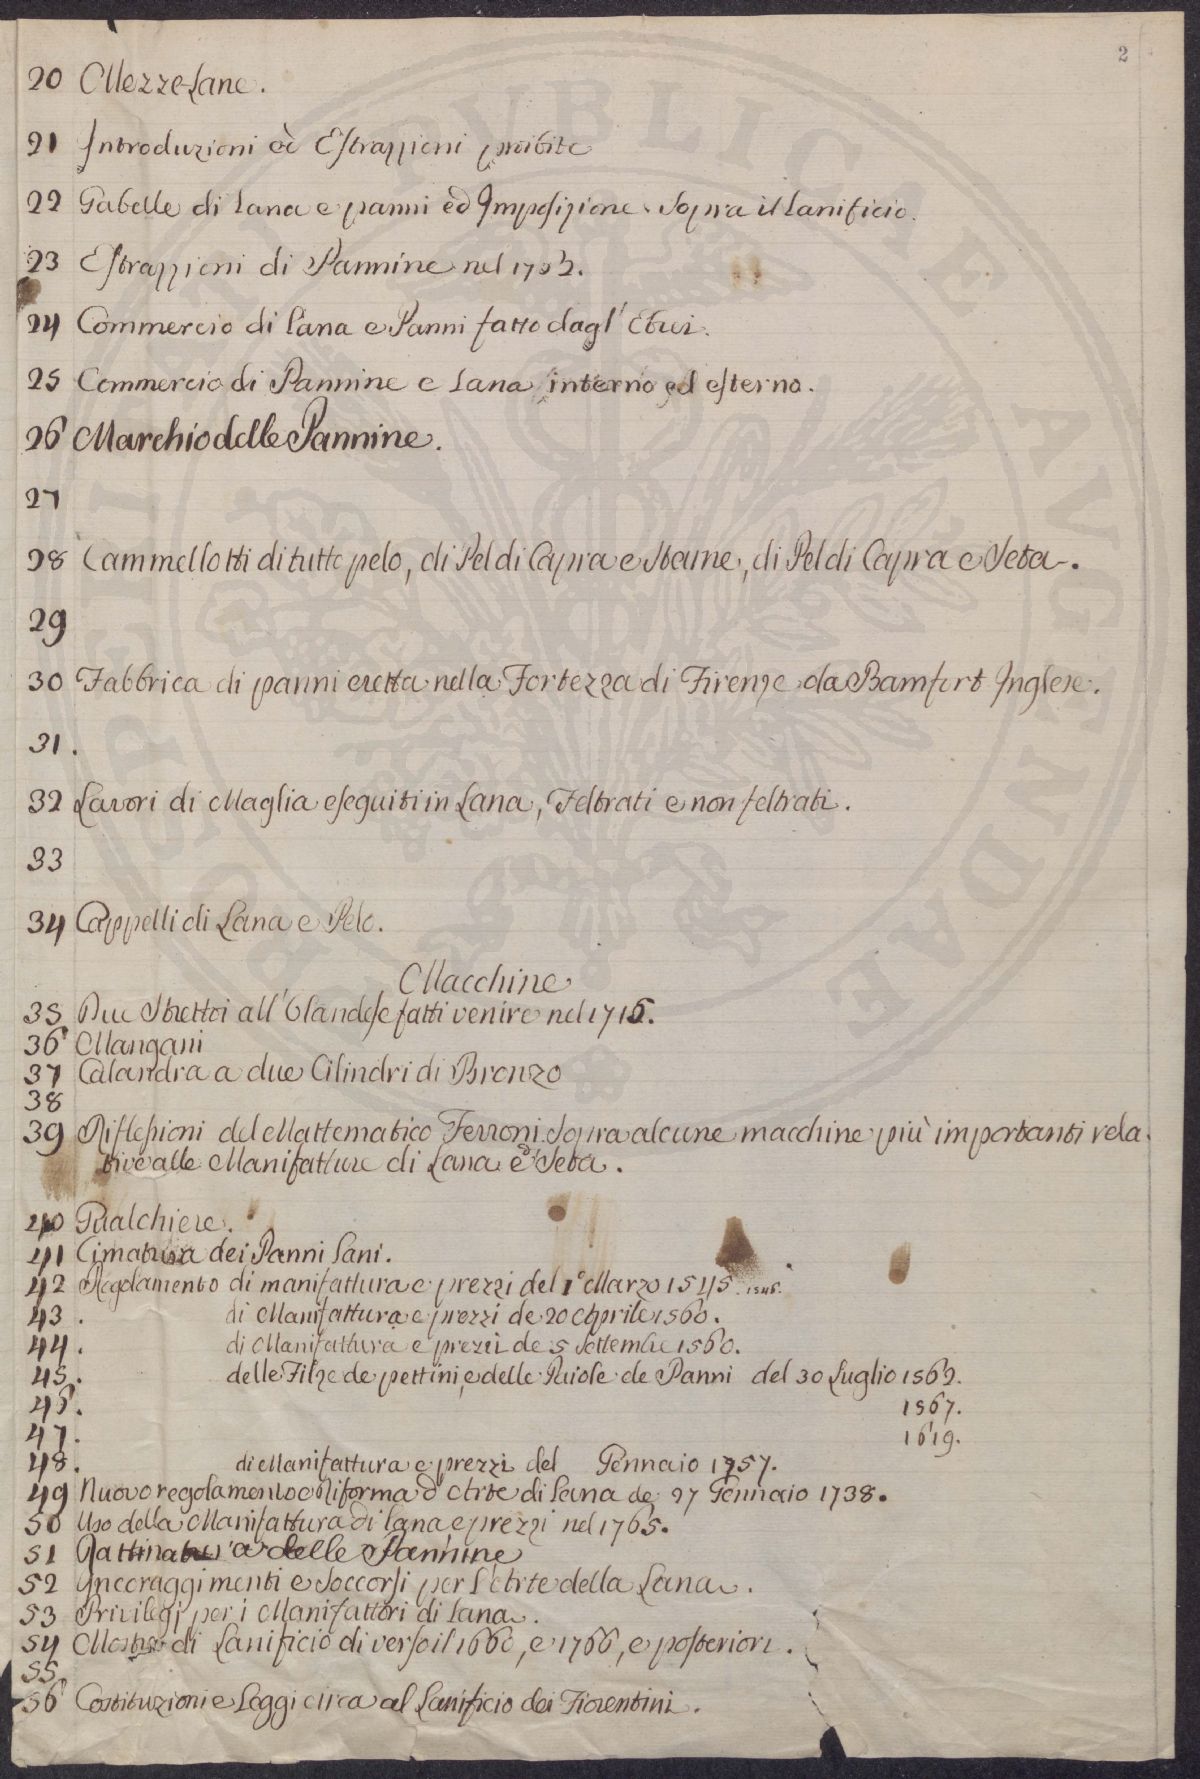 2
20 Mezze Lane.
21 Introduzioni ed Estrazzioni proibite
22 Gabelle di Lana e panni ed Imposizione sopra il Lanificio.
23 Estrazzioni di Pannine nel 1702.
24 Commercio di Lana e Panni fatto dagl' Ebrei.
25 Commercio di Pannine e Lana interno ed esterno.
26 Marchio delle Pannine.
27
28 Cammellotti di tutto pelo, di Pel di Capra e Stame, di Pel di Capra e Seta.
29
30 Fabbrica di panni eretta nella Fortezza di Firenze da Bamfort Inglese.
31.
32 Lavori di Maglia eseguiti in Lana, Feltrati e non feltrati.
33
34 Cappelli di Lana e Pelo.
Macchine
35 Due Strettoi all'Olandese fatti venire nel 1716.
36 Mangani
37 Calandra a due Cilindri di Bronzo
38
39 Riflessioni del Mattematico Ferroni sopra alcune macchine più importanti rela
tive alle Manifatture di Lana e Seta.
40 Gualchiere.
41 Cimatura dei Panni Lani.
42 Regolamento di manifattura e prezzi del 1° Marzo 1545. 1546.
43. di Manifattura e prezzi de 20 Aprile 1560.
44. di Manifattura e prezzi de 5 Settembre 1560.
45. delle Filze de pettini, e delle Ruiole de Panni del 30 Luglio 1562.
46. 1567.
47. 1619.
48. di Manifattura e prezzi del Gennaio 1757.
49 Nuovo regolamento e Riforma d'Arte di Lana de 27 Gennaio 1738.
50 Uso della Manifattura di lana e prezzi nel 1765.
51 Rattinatura delle Pannine
52 Incoraggimenti e Soccorsi per l'Arte della Lana.
53 Privilegi per i Manifattori di Lana.
54 Mostre di Lanificio di verso il 1660, e 1766, e posteriori.
55
56 Costituzioni e Leggi circa al Lanificio dei Fiorentini.
PROSPERITATI PVBLICAE AVGENDAE